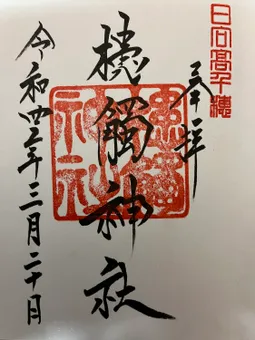 日向髙千穂
奉拝
槵觸神社
令和四年三月二十日